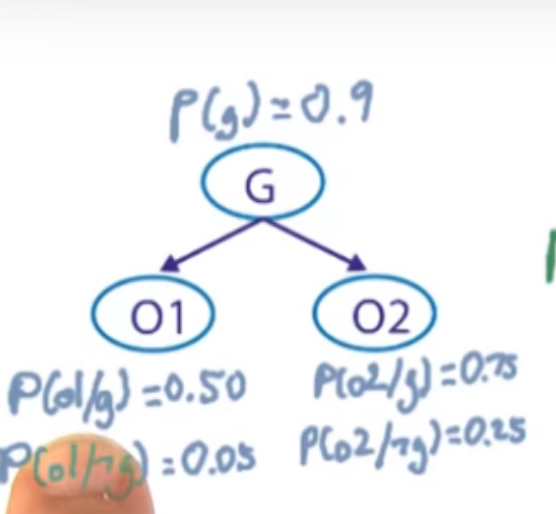 P(g)=0.9
G
O1 O2
P(o1/g)=0.50 P(o2/g)=0.75
P(o1/¬g)=0.05 P(o2/¬g)=0.25